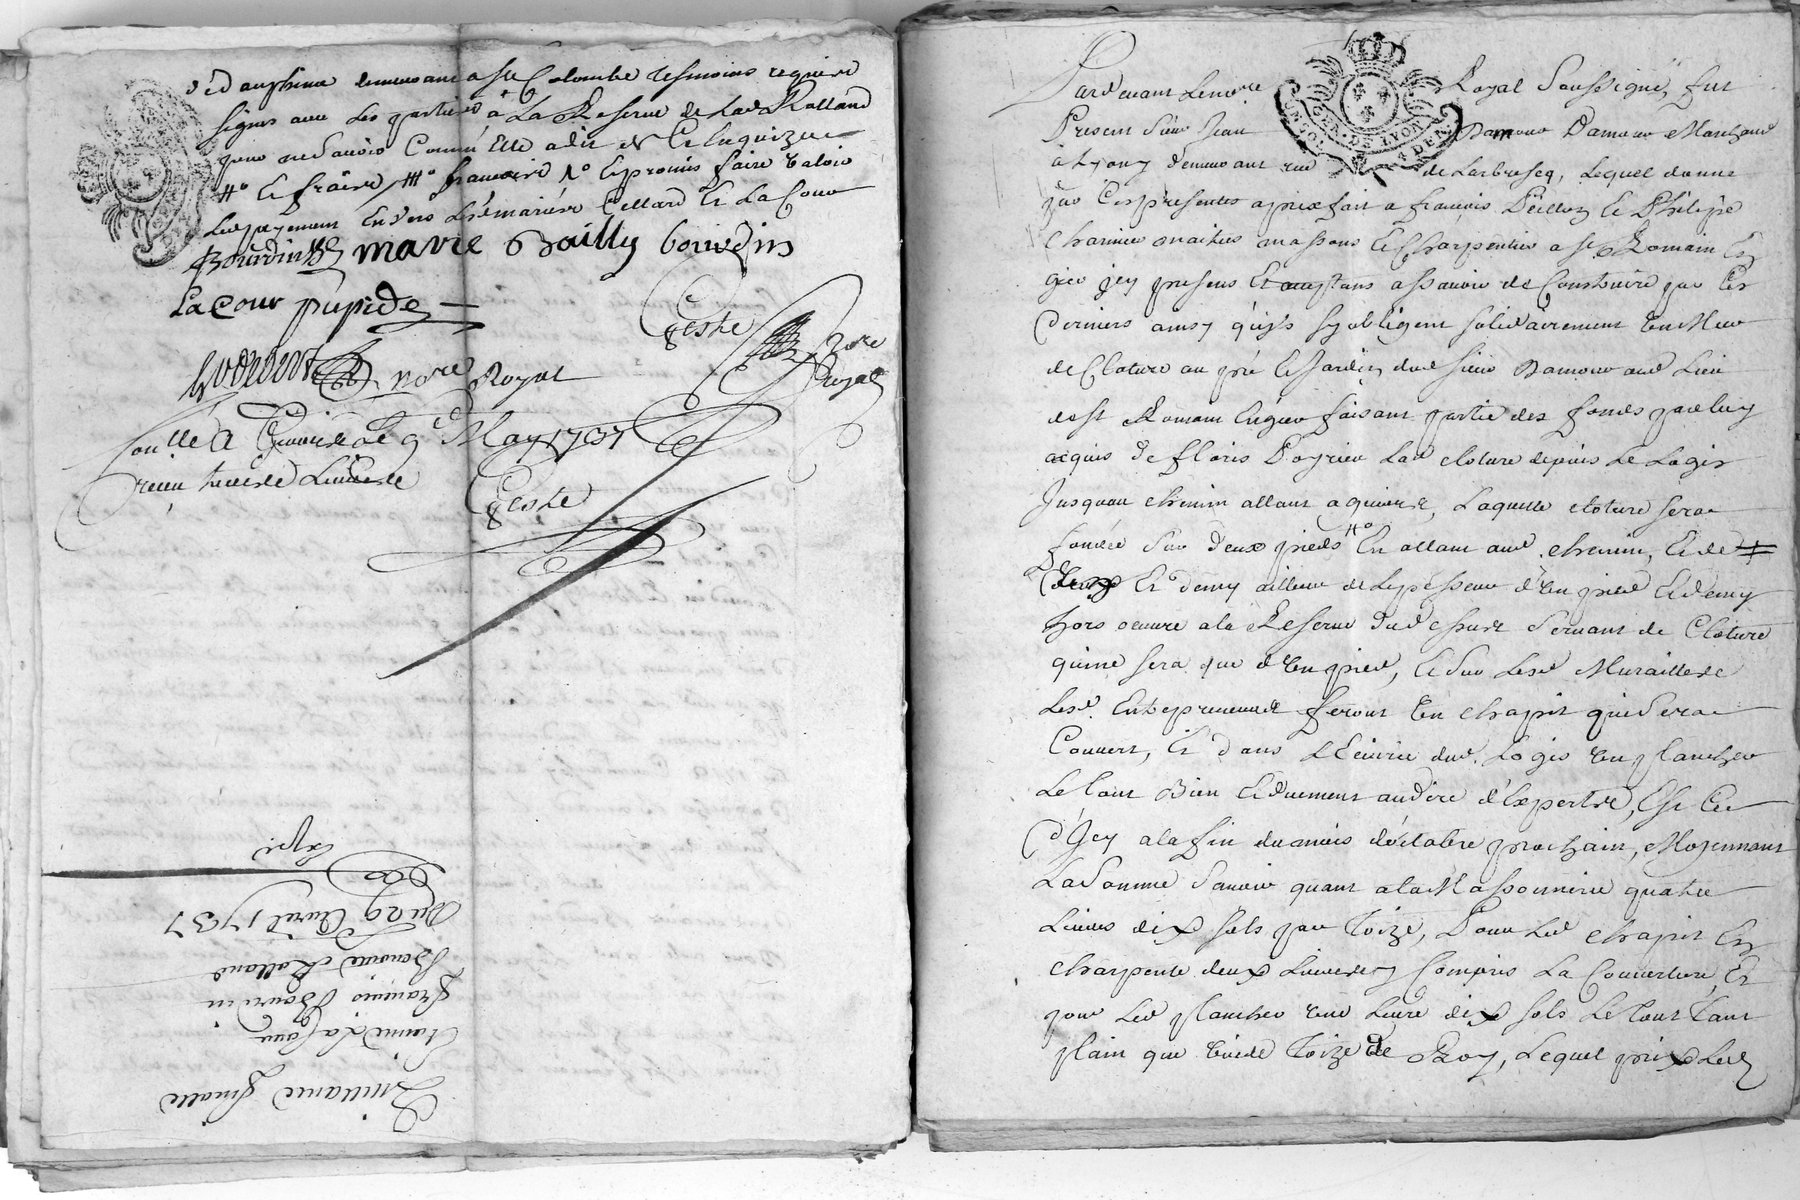 de Dauphiné demeurant a Ste Colombe tesmoins requis et
signes avec les parties a La Reserve de Lad. Rolland
pour ne sçavoir comme elle a dit de ce enquize
Led. payement Envers Les. mariés Cellard Et La Cour
Bourdin marie Bailly bourdin
La Cour pupide
Geste
nore Royal
nore Royal
Conllé a Givors Le 9e May 1737
reçeu treize Livres
Geste
Expié
Du 29 Avril 1737
Benoite Rolland
François Bourdin
Etienne La Cour
Quittance finalle
Pardevant Le nore Royal Soussigné, fut
GEN. DE LYON
Present Sieur Jean Damour Marchand
à Lyon y demeurant rue de Larbresec, Lequel donne
par Ces presentes a prixfait a françois Peillon Et Philipe
Charmier maitres massons Et Charpentier a St. Romain En
gier jcy presens Et acceptans assavoir de Construire par Ces
Derniers ainsy qu'ils s'y obligent solidairement Un Mur
de Cloture au pré Et Jardin dud. sieur Damour aud. Lieu
de St Romain En gier faisant partie des fonds par luy
acquis de floris Poyrieu Lad. cloture depuis Le Logis
Jusquau chemin allant a quinese, Laquelle cloture sera
fondée Sur deux pieds En allant aud. chemin, Et de
Et demy ailleur de Lepesseur d'Un pied Et demy
hors oeuvre a la Reserve du dessus Servant de Cloture
qui ne sera que d'Un pied, Et Sur Lesd. Murailles
Lesd. Entrepreneurs feront Un chapit qui Sera
Couvert, Et dans L'Ecurie dud. Logis Un plancher
Le tout Bien Et duement au dire d'Experts, Et Ce
D'Jcy a la fin du mois d'octobre prochain, Moyennant
La Somme Sçavoir quant a la Massonnerie quatre
Livres dix sols par Toize, Pour Led. chapit En
charpente deux Livres y Compris La Couverture Et
pour Led. plancher une Livre dix sols Le tout Tant
plain que vuide Toize de Roy, Lequel prix Led.